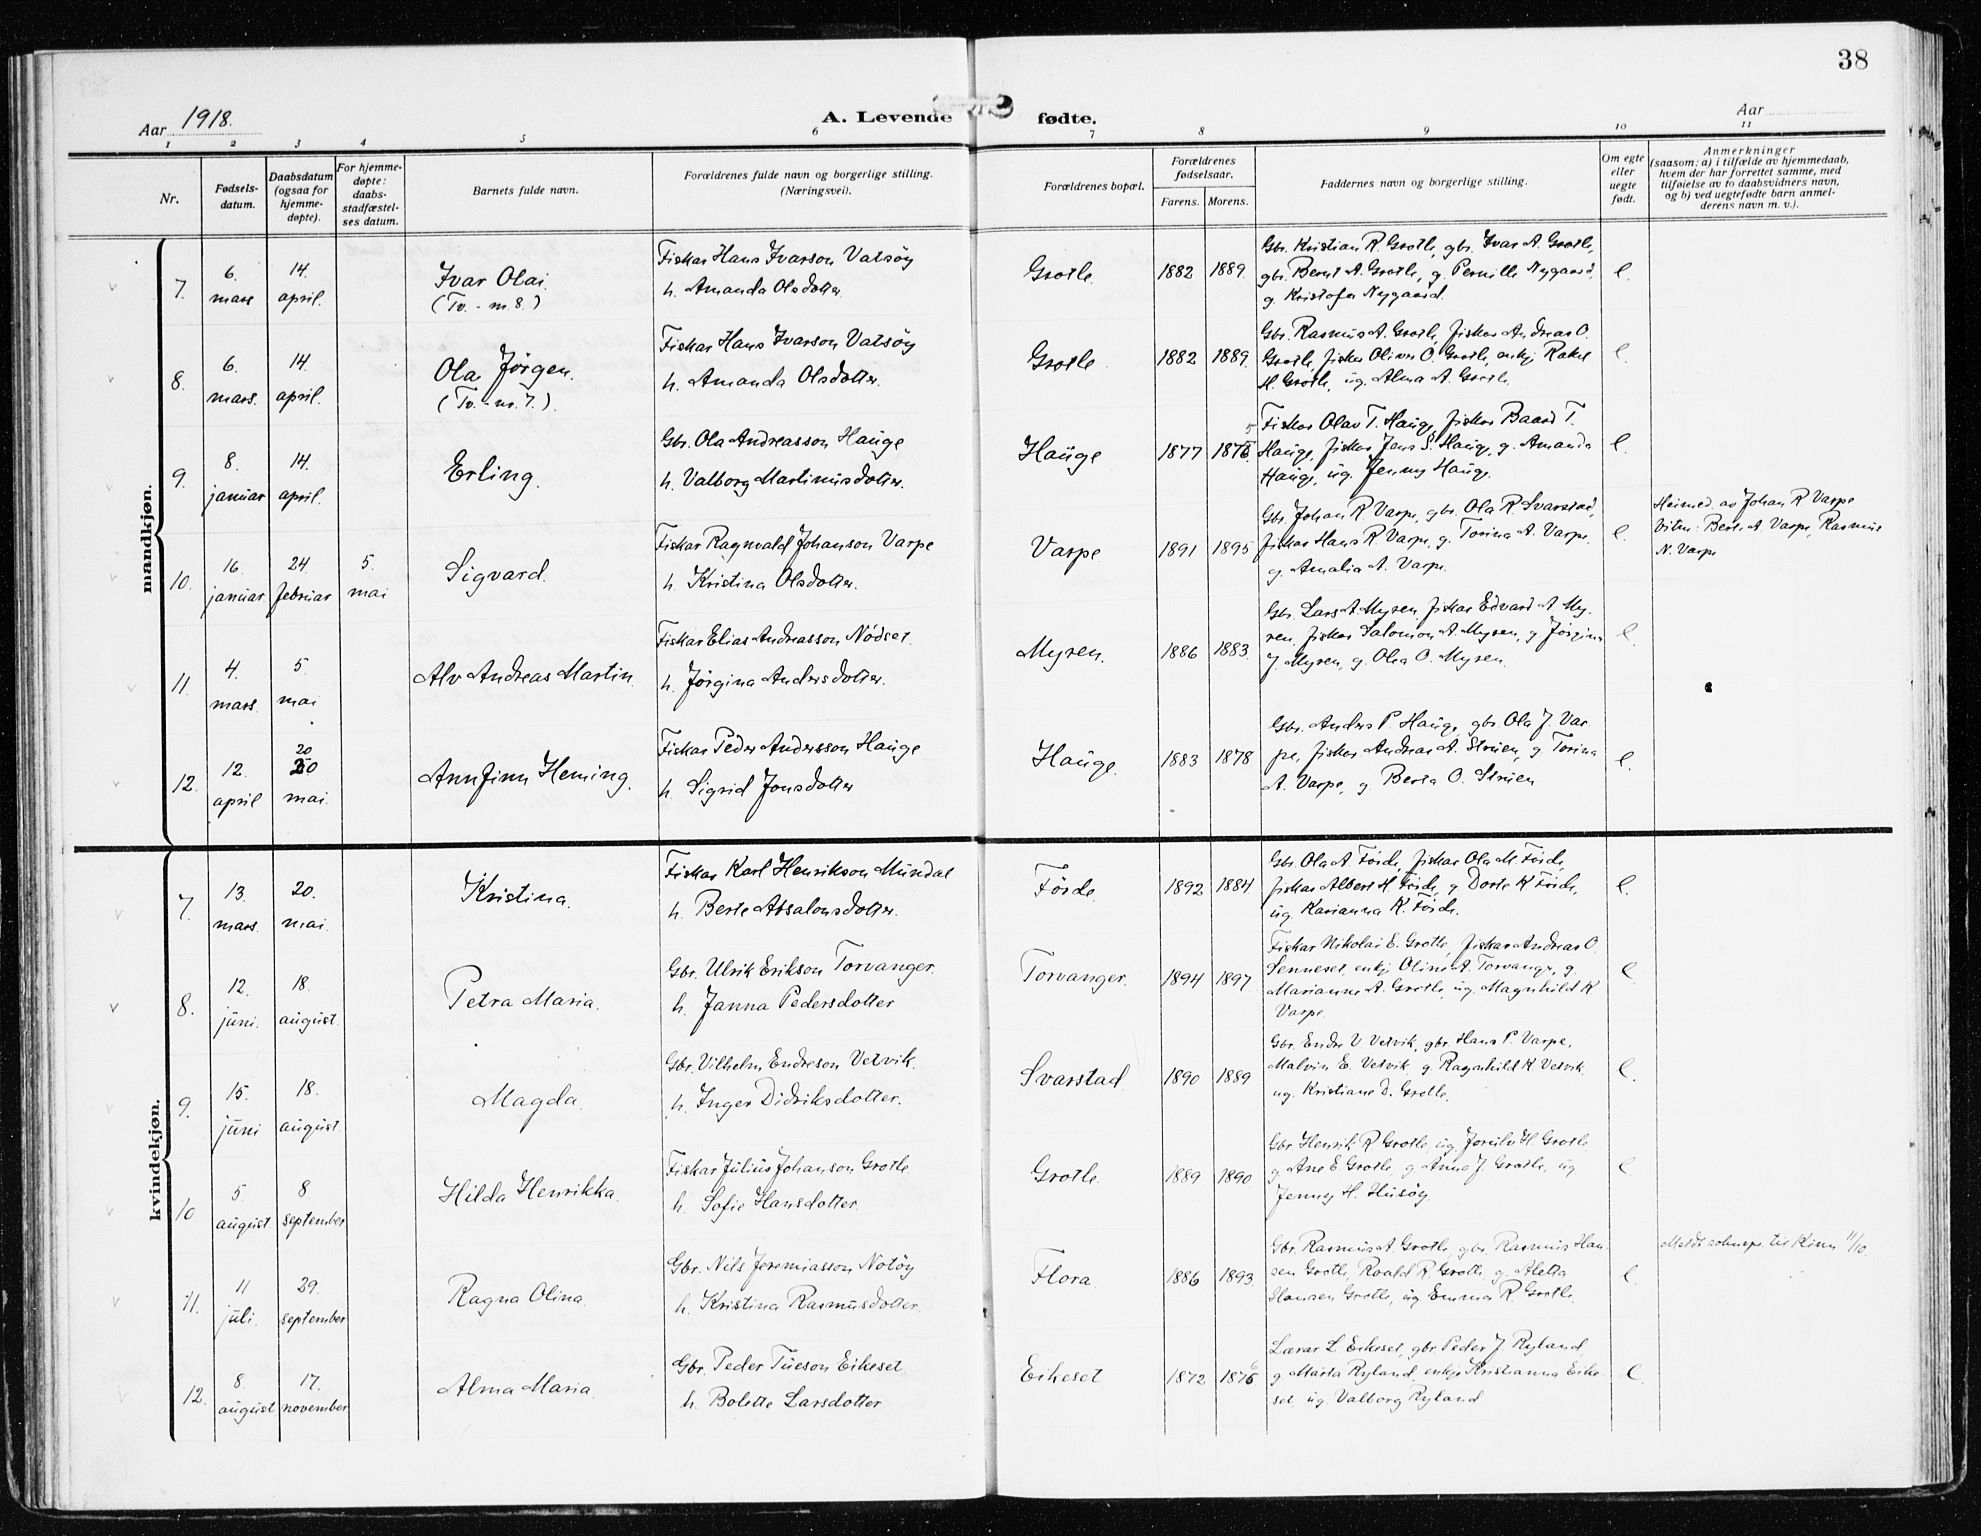 38
Aar 1918.
A. Levende fødte.
Aar
1 2 3 4 5 6 7 8 9 10 11
Nr.
Fødsels-
datum.
Daabsdatum
(ogsaa for
hjemme-
døpte).
For hjemme-
døpte:
daabs-
stadfæstel-
ses datum.
Barnets fulde navn.
Forældrenes fulde navn og borgerlige stilling.
(Næringsvei).
Forældrenes bopæl.
Forældrenes
fødselsaar.
Farens. Morens.
Faddernes navn og borgerlige stilling.
Om egte
eller
uegte
født.
Anmerkninger
(saasom: a) i tilfælde av hjemmedaab,
hvem der har forrettet samme, med
tilføielse av to daabsvidners navn,
og b) ved uegtefødte barn anmel-
derens navn m. v.).
mandkjøn.
7. 6. mars 14. april. Ivar Olai (Tv. - nr. 8.)
Fiskar Hans Ivarson Vatsøy
h. Amanda Olsdotter.
Grotle 1882 1889.
Gbr. Kristian R. Grotle, gbr. Ivar A. Grotle,
gbr. Bernt A. Grotle, g. Pernille Nygaard,
g. Kristofa Nygaard.
e.
8. 6. mars. 14. april. Ola Jørgen. (Tv. - nr. 7.).
Fiskar Hans Ivarson Vatsøy
h. Amanda Olsdotter.
Grotle 1882 1889.
Gbr. Rasmus A. Grotle, fiskar Andreas O.
Grotle, fiskar Oliver O. Grotle, enkj. Rakel
H. Grotle, ug. Alma A. Grotle.
e.
9. 8. januar 14. april. Erling.
Gbr. Ola Andreasson Hauge
h. Valborg Martinusdotter.
Hauge 1877
Fiskar Olav T. Hauge, fiskar Baard T.
Hauge, fiskar Jens S. Hauge, g. Amanda
Hauge, ug. Jenny Hauge.
e.
10. 16. januar 24. februar 5. mai Sigvard.
Fiskar Ragnvald Johanson Varpe
h. Kristina Olsdotter.
Varpe 1891 1895
Gbr. Johan R. Varpe, gbr. Ola R. Svarstad,
fiskar Hans R. Varpe, g. Torina A. Varpe,
g. Amalia A. Varpe.
e.
Heimed. av Johan R. Varpe
Vitne: Berte A. Varpe, Rasmus
N. Varpe
11. 4. mars. 5. mai Alv Andreas Martin.
Fiskar Elias Andreasson Nødset.
h. Jørgina Andersdotter.
Myren. 1886 1883.
Gbr. Lars A. Myren, fiskar Edvard A. My-
ren, fiskar Salomon A. Myren, g. Jørgina
J. Myren, g. Olea O. Myren.
e
12. 12. april 20 mai. Annfinn Heming.
Fiskar Peder Andersson Hauge
h. Sigrid Jonsdotter
Hauge. 1883 1878
Gbr. Anders P. Hauge, gbr. Ola J. Var-
pe, fiskar Andreas A. Struen, g. Torina
A. Varpe, g. Berta O. Struen
e.
kvindekjøn.
7. 13. mars. 20. mai. Kristina.
Fiskar Karl Henrikson Mundal
h. Berte Absalonsdotter.
Førde. 1892 1884
Gbr. Ola A. Førde, fiskar Ola M. Førde,
fiskar Albert H. Førde, g. Dorte K. Førde,
ug. Karianna K. Førde.
e.
8. 12. juni. 18. august. Petra Maria.
Gbr. Ulrik Erikson Torvanger.
h. Janna Pedersdotter
Torvanger. 1894 1897
Fiskar Nikolai E. Grotle, fiskar Andreas O.
Senneset, enkj. Oline A. Torvange, g.
Marianne A. Grotle, ug. Magnhild K.
Varpe.
e
9. 15. juni 18. august. Magda.
Gbr. Vilhelm Endreson Vetvik.
h. Inger Didriksdotter.
Svarstad. 1890 1889
Gbr. Endre V. Vetvik, gbr. Hans P. Varpe,
Malvin E. Vetvik, g. Ragnhild K. Vetvik,
ug. Kristiane D. Grotle.
e.
10 5. august 8. september Hilda Henrikka.
Fiskar Julius Johanson Grotle.
h. Sofie Hansdotter.
Grotle. 1889 1890
Gbr. Henrik R. Grotle, ug. Jorulv H. Grotle
g. Ane E. Grotle, g. Anna J. Grotle, ug
Jenny H. Husøy.
e
11. 11 juli. 29. september Ragna Olina.
Gbr. Nils Jeremiasson Notøy
h. Kristina Rasmusdotter.
Flora. 1886 1893
Gbr. Rasmus A. Grotle, gbr. Rasmus Han-
sen Grotle, Roald R. Grotle, g. Aletta
Hansen Grotle, ug. Emma R. Grotle.
e.
Meldt til Kinn 11/10.
12. 8. august 17. november Alma Maria.
Gbr. Peder Tueson Eikeset
h. Bolette Larsdotter
Eikeset 1872
Lærar L. Eikeset, gbr. Peder J. Ryland,
g. Marta Ryland, enkje Kristianna Eike-
set, ug. Valborg Ryland
e.